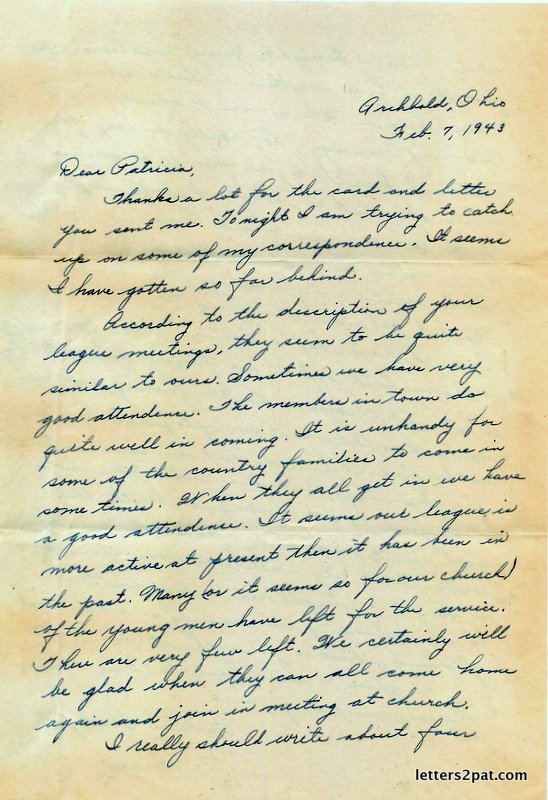 Archbold, Ohio
Feb. 7, 1943
Dear Patricia,
Thanks a lot for the card and letter
you sent me. Tonight I am trying to catch
up on some of my correspondence. It seems
I have gotten so far behind.
According to the description of your
league meetings, they seem to be quite
similar to ours. Sometimes we have very
good attendence. The members in town do
quite well in coming. It is unhandy for
some of the country families to come in
some times. When they all get in we have
a good attendence. It seems our league is
more active at present then it has been in
the past. Many (or it seems so for our church)
of the young men have left for the service.
There are very few left. We certainly will
be glad when they can all come home
again and join in meeting at church.
I really should write about four
letters2pat.com